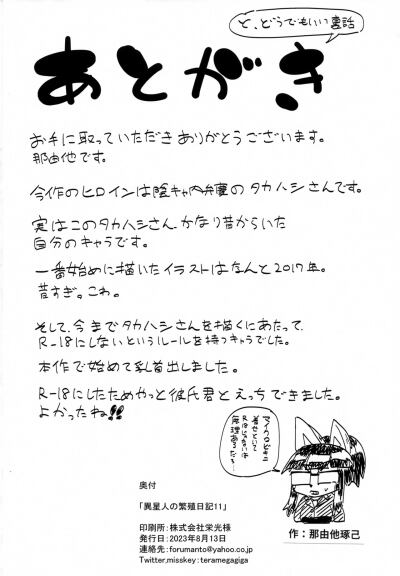 と、どうでもいい裏話
あとがき
お手に取っていただきありがとうございます。
那由他です。
今作のヒロインは陰キャ内弁慶のタカハシさんです。
実はこのタカハシさん、かなり昔からいた
自分のキャラです。
一番始めに描いたイラストはなんと2017年。
昔すぎ。こわ。
そして、今までタカハシさんを描くにあたって、
R-18にしないというルールを持つキャラでした。
本作で始めて乳首出しました。
R-18にしたためやっと彼氏君とえっちできました。
よかったね!!
マイクロビキニ
着せといて
R18じゃないは
無理あるだろ
奥付
「異星人の繁殖日記11」
作:那由他琢己
印刷所:株式会社栄光様
発行日:2023年8月13日
連絡先:forumanto@yahoo.co.jp
Twitter,misskey:teramegagiga